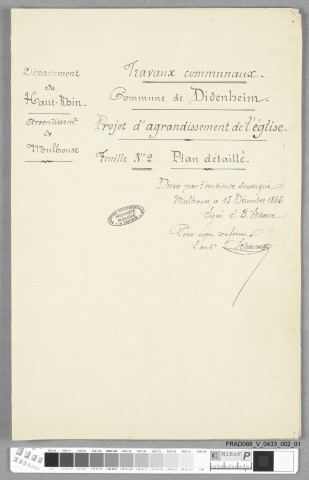 Département
du
Haut-Rhin.
Arrondissem.t
de
Mulhouse
Travaux communaux.
Commune de Didenheim.
Projet d'agrandissement de l'église.
Feuille N° 2. Plan détaillé.
Dressé par l'architecte soussigné
Mulhouse le 15 Décembre 1866
Signé J. B. Schacre
Pour copie conforme
Schacre
FRAD068_V_0433_002_01